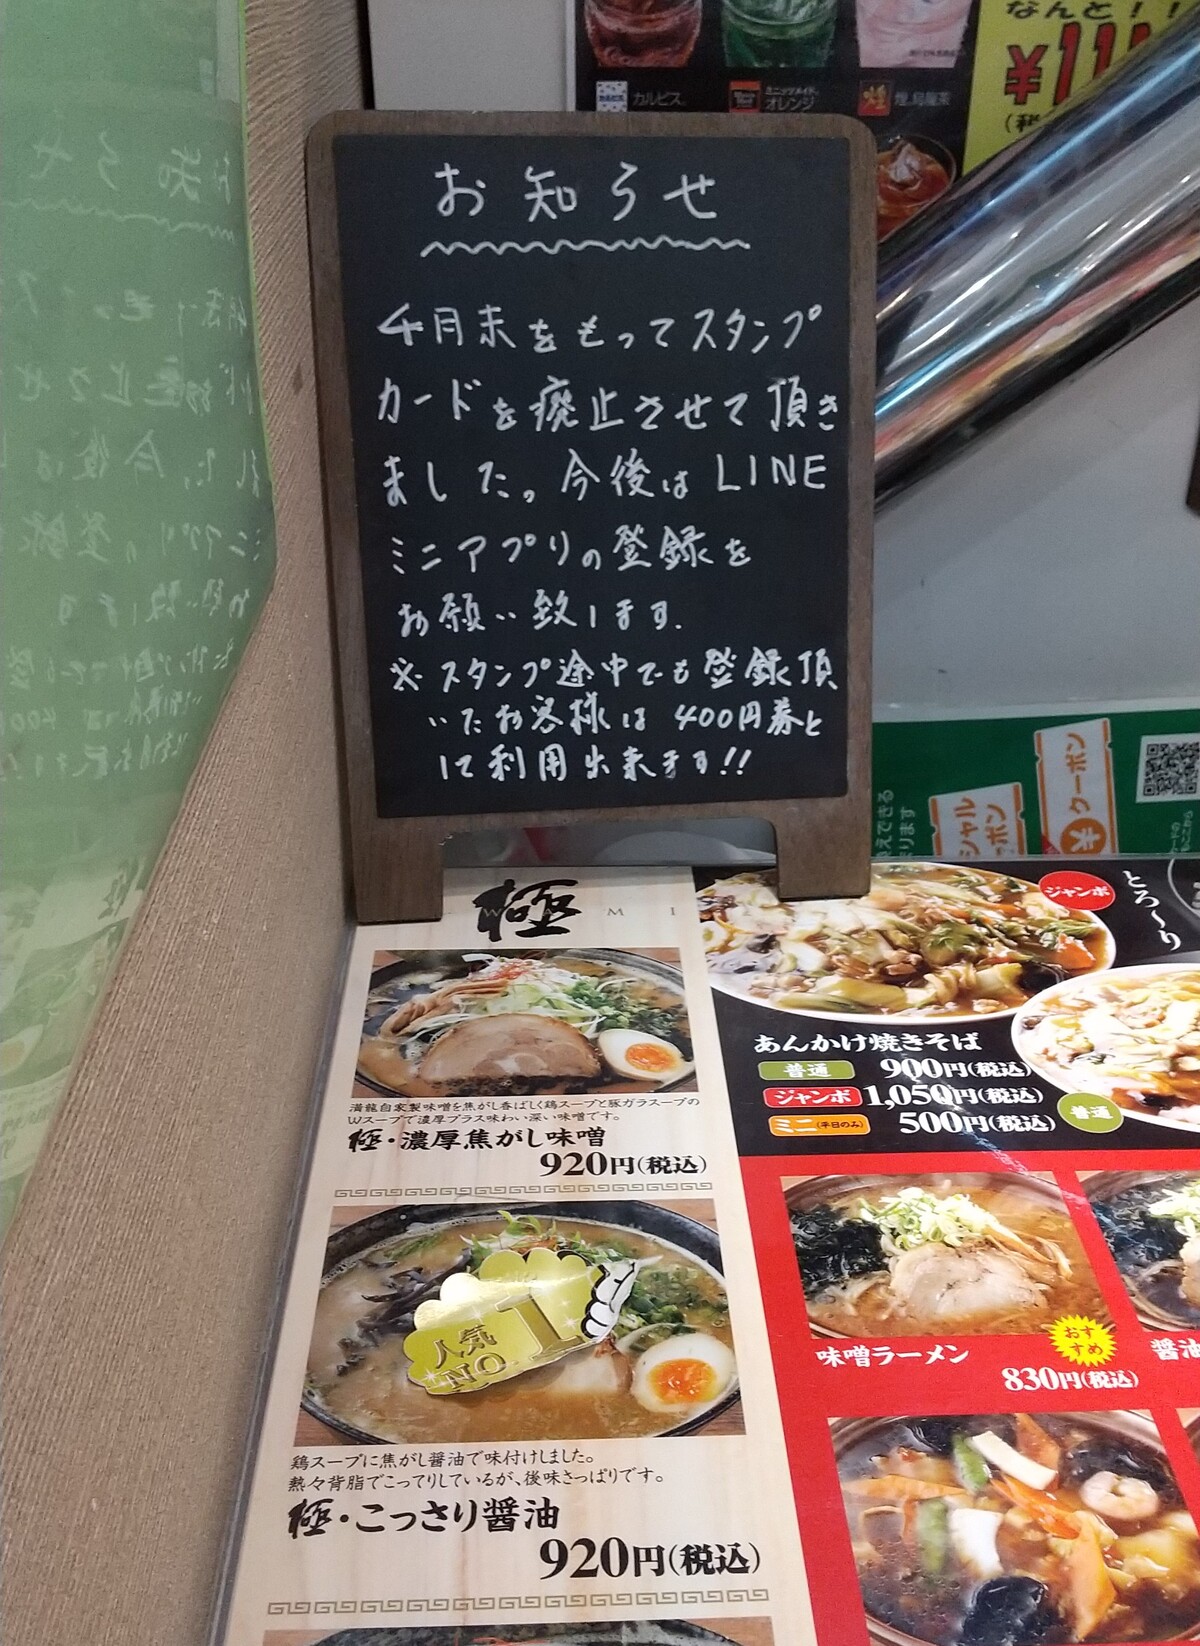 なんと！！
¥111
カルピス。
ミニッツメイド。
オレンジ
煌 烏龍茶
お知らせ
4月末をもってスタンプ
カードを廃止させて頂き
ました。今後はLINE
ミニアプリの登録を
お願い致します.
※スタンプ途中でも登録頂
いたお客様は400円券と
して利用出来ます!!
クーポン
極
ジャンボ
とろ〜り
あんかけ焼きそば
普通 900円(税込)
ジャンボ 1,050円(税込)
ミニ(平日のみ) 500円(税込)
普通
満龍自家製味噌を焦がし香ばしく鶏スープと豚ガラスープの
Wスープで濃厚プラス味わい深い味噌です。
極・濃厚焦がし味噌
920円(税込)
人気
NO.1
鶏スープに焦がし醤油で味付けしました。
熱々背脂でこってりしているが、後味さっぱりです。
極・こっさり醤油
920円(税込)
おす
すめ
味噌ラーメン
830円(税込)
醤油